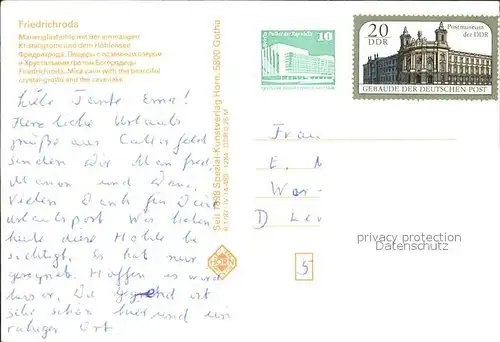 Friedrichroda
Marienglashöhle mit der einmaligen
Kristallgrotte und dem Höhlensee
Фридрихрода. Пещера с
и Хрустальным гротом Богородицы
Friedrichroda. Mica cave with the beautiful
crystal-grotto and the cave lake
Liebe Tante Erna!
Herzliche Urlaubs
grüße aus
senden Dir Manfred,
Manon und
Vielen Dank für Deine
Urlaubspost Wir haben
heute diese Höhle be
sichtigt. Es hat nur
geregnet. Hoffen es wird
besser. Die Gegend ist
sehr schön hier und ein
ruhiger Ort.
Seit 1898 Spezial-Kunstverlag Horn, 5800 Gotha
HORN
Palast der Republik
10
DDR
20
DDR
Postmuseum
der DDR
GEBÄUDE DER DEUTSCHEN POST
Frau
E. M
D Lev
5
privacy protection
Datenschutz